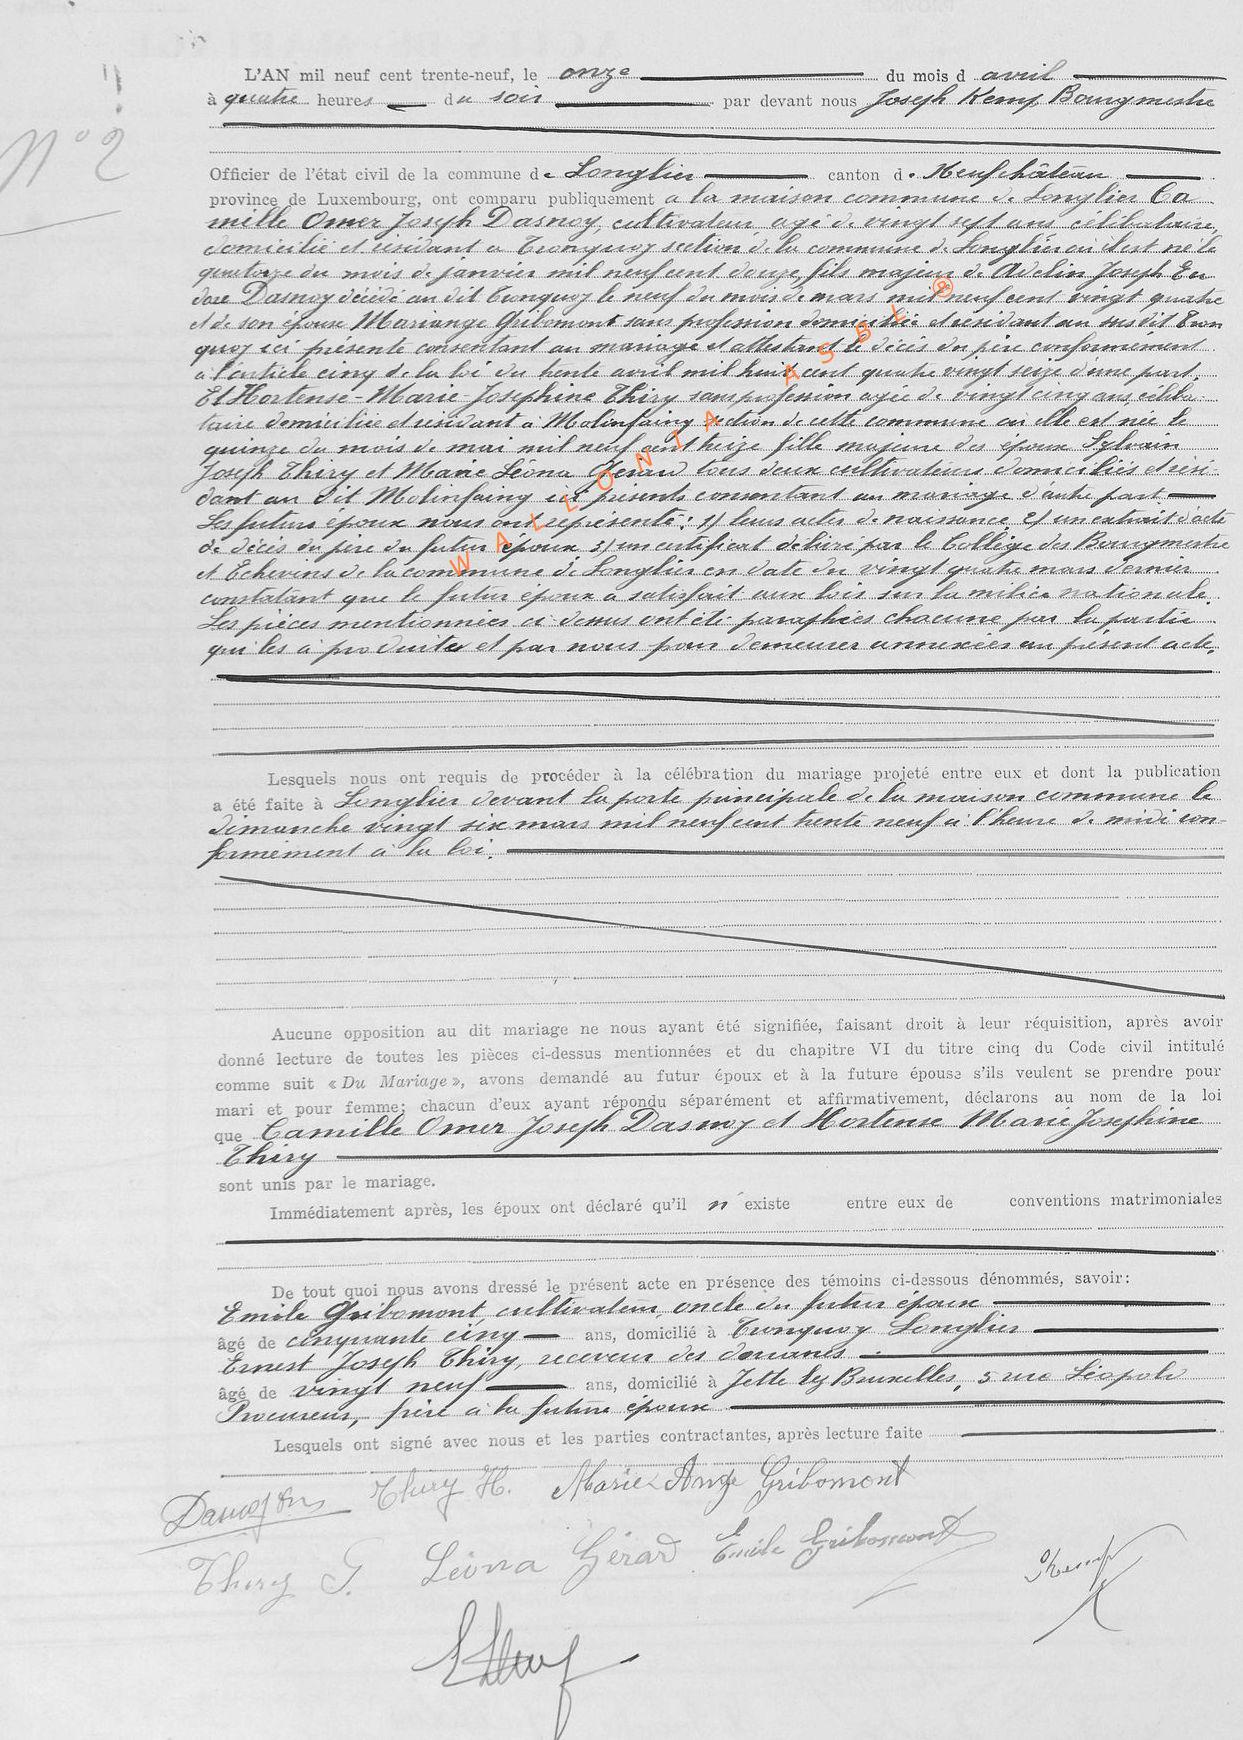 L'AN mil neuf cent trente-neuf, le onze du mois d avril
à quatre heures du soir par devant nous Joseph Kemp Bourgmestre
N° 2
Officier de l'état civil de la commune de Longlier canton de Neufchâteau
province de Luxembourg, ont comparu publiquement à la maison commune de Longlier Ca
mille Omer Joseph Dasnoy, cultivateur agé de vingt sept ans célibataire,
domicilié et résidant à Tronquoy section de la commune de Longlier où il est né le
quatorze du mois de janvier mil neuf cent douze, fils majeur de Adelin Joseph Eu
doxe Dasnoy décédé au dit Tronquoy le neuf du mois de mars mil neuf cent vingt quatre
et de son épouse Mariange Gribomont sans profession domiciliée et résidant au susdit Tron
quoy ici présente consentant au mariage et attestant le décès du père conformément
à l'article cinq de la loi du trente avril mil huit cent quatre vingt seize d'une part.
Et Hortense-Marie-Josephine Thiry sans profession agée de vingt cinq ans céliba
taire domiciliée et résidant à Molinfaing section de cette commune où elle est née le
quinze du mois de mai mil neuf cent treize fille majeure des époux Sylvain
Joseph Thiry et Marie Léona Gérard tous deux cultivateurs domiciliés et rési
dant au dit Molinfaing ici présents consentant au mariage d'autre part
Les futurs époux nous ont représenté: 1) leurs actes de naissance 2) un extrait d'acte
de décès du père du futur époux 3) un certificat délivré par le Collège des Bourgmestre
et Echevins de la commune de Longlier en date du vingt quatre mars dernier
constatant que le futur époux a satisfait aux lois sur la milice nationale.
Les pièces mentionnées ci dessus ont été paraphées chacune par la partie
qui les a produites et par nous pour demeurer annexées au présent acte.
WALLONIA ASBL ®
Lesquels nous ont requis de procéder à la célébration du mariage projeté entre eux et dont la publication
a été faite à Longlier devant la porte principale de la maison commune le
dimanche vingt six mars mil neuf cent trente neuf à l'heure de midi con-
formément à la loi.
Aucune opposition au dit mariage ne nous ayant été signifiée, faisant droit à leur réquisition, après avoir
donné lecture de toutes les pièces ci-dessus mentionnées et du chapitre VI du titre cinq du Code civil intitulé
comme suit « Du Mariage », avons demandé au futur époux et à la future épouse s'ils veulent se prendre pour
mari et pour femme; chacun d'eux ayant répondu séparément et affirmativement, déclarons au nom de la loi
que Camille Omer Joseph Dasnoy et Hortense Marie Josephine
Thiry
sont unis par le mariage.
Immédiatement après, les époux ont déclaré qu'il n'existe entre eux de conventions matrimoniales
De tout quoi nous avons dressé le présent acte en présence des témoins ci-dessous dénommés, savoir:
Emile Gribomont, cultivateur, oncle du futur époux
âgé de cinquante cinq ans, domicilié à Tronquoy Longlier
Ernest Joseph Thiry, receveur des douanes
âgé de vingt neuf ans, domicilié à Jette lez Bruxelles, 5 rue Léopold
Procureur, frère à la future épouse
Lesquels ont signé avec nous et les parties contractantes, après lecture faite
Thiry H. Marie Ange Gribomont
Thiry S. Léona Gérard Emile Gribomont JKemp